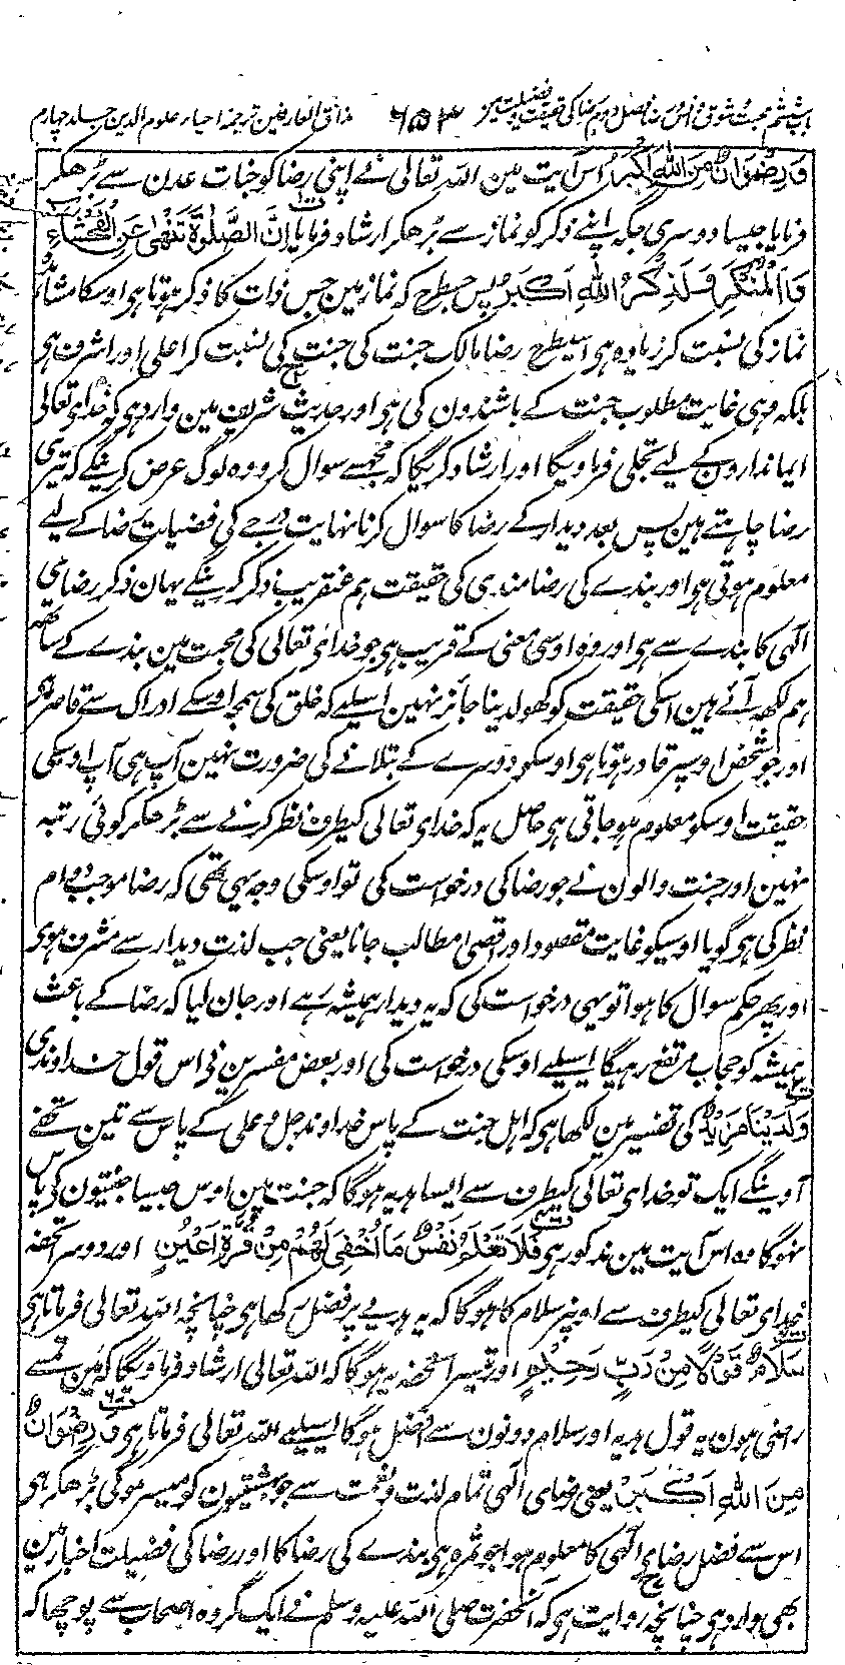 باب ششم محبت و شوق و انس و رضا فصل دہم رضا کی حقیقت و فضیلت مین ۶۵۳ مذاق العارفین ترجمۂ احیاء علوم الدین جلد چہارم
وَرِضْوَانٌ مِنَ اللهِ اَكْبَرُ اس آیت مین اللہ تعالی نے اپنی رضا کو جنات عدن سے بڑھکر
فرمایا جیسا دوسری جگہ اپنے ذکر کو نماز سے بڑھکر ارشاد فرمایا اِنَّ الصَّلٰوةَ تَنْهٰى عَنِ الْفَحْشَاءِ
وَالْمُنْكَرِ وَلَذِكْرُ اللهِ اَكْبَرُ پس جسطرح کہ نماز مین جس ذات کا ذکر ہوتا ہی اوسکا مشاہدہ
نماز کی نسبت کر زیادہ ہی اسیطرح رضا مالک جنت کی جنت کی نسبت کر اعلی اور اشرف ہی
بلکہ وہی غایت مطلوب جنت کے باشندون کی ہی اور حدیث شریف مین وارد ہی کہ خدای تعالی
ایماندارون کے لیے تجلی فرماویگا اور ارشاد کریگا کہ مجھسے سوال کرو وہ لوگ عرض کرینگے کہ تیری
رضا چاہتے ہین پس بعد دیدار کے رضا کا سوال کرنا نہایت درجے کی فضیلت رضا کے لیے
معلوم ہوتی ہی اور بندے کی رضامندی کی حقیقت ہم عنقریب ذکر کرینگے یہان ذکر رضای
الٰہی کا بندے سے ہی اور وہ اوسی معنی کے قریب ہی جو خدای تعالی کی محبت مین بندے کے ساتھ
ہم لکھہ آئے ہین اسکی حقیقت کو کھولدینا جائز نہین اسلیے کہ خلق کی سمجھ اوسکے ادراک سے قاصر ہی
اور جو شخص اوسپر قادر ہوتا ہی اوسکو دوسرے کے بتلانے کی ضرورت نہین آپ ہی آپ اوسکی
حقیقت اوسکو معلوم ہو جاتی ہی حاصل یہ کہ خدای تعالی کیطرف نظر کرنے سے بڑھکر کوئی رتبہ
نہین اور جنت والون نے جو رضا کی درخواست کی تو اوسکی وجہ یہی تھی کہ رضا موجب دوام
نظر کی ہی گویا اوسیکو غایت مقصود اور اقصی مطالب جانا یعنی جب لذت دیدار سے مشرف ہوی
اور پھر حکم سوال کا ہوا تو یہی درخواست کی کہ یہ دیدار ہمیشہ رہے اور جان لیا کہ رضا کے باعث
ہمیشہ کو حجاب مرتفع رہیگا اسلیے اوسکی درخواست کی اور بعض مفسرین نی اس قول خداوندی
وَلَدَيْنَا مَزِيْدٌ کی تفسیر مین لکھا ہی کہ اہل جنت کے پاس خداوند جل و علی کے پاس سے تین تحفے
آوینگے ایک تو خدای تعالی کیطرف سے ایسا ہدیہ ہوگا کہ جنت مین اوس جیسا جنتیون کی پاس
نہوگا وہ اس آیت مین مذکور ہی فَلَا تَعْلَمُ نَفْسٌ مَا اُخْفِيَ لَهُمْ مِنْ قُرَّةِ اَعْيُنٍ اور دوسرا تحفہ
خدای تعالی کیطرف سے اونپر سلام کا ہوگا کہ یہ ہدیے پر فضل رکھتا ہی چنانچہ اللہ تعالی فرماتا ہی
سَلَامٌ قَوْلًا مِنْ رَبٍّ رَحِيْمٍ اور تیسرا تحفہ یہ ہوگا کہ اللہ تعالی ارشاد فرماویگا کہ مین تمسے
راضی ہون یہ قول ہدیہ اور سلام دونون سے افضل ہوگا اسیلیے اللہ تعالی فرماتا ہی وَرِضْوَانٌ
مِنَ اللهِ اَكْبَرُ یعنی رضای الٰہی تمام لذت و نعمت سے جو بہشتیون کو میسر ہوگی بڑھکر ہی
اس سے فضل رضای الٰہی کا معلوم ہوا جو ثمرہ ہی بندے کی رضا کا اور رضا کی فضیلت اخبار مین
بھی وارد ہی چنانچہ روایت ہی کہ آنحضرت صلی اللہ علیہ وسلم نی ایک گروہ اصحاب سے پوچھا کہ